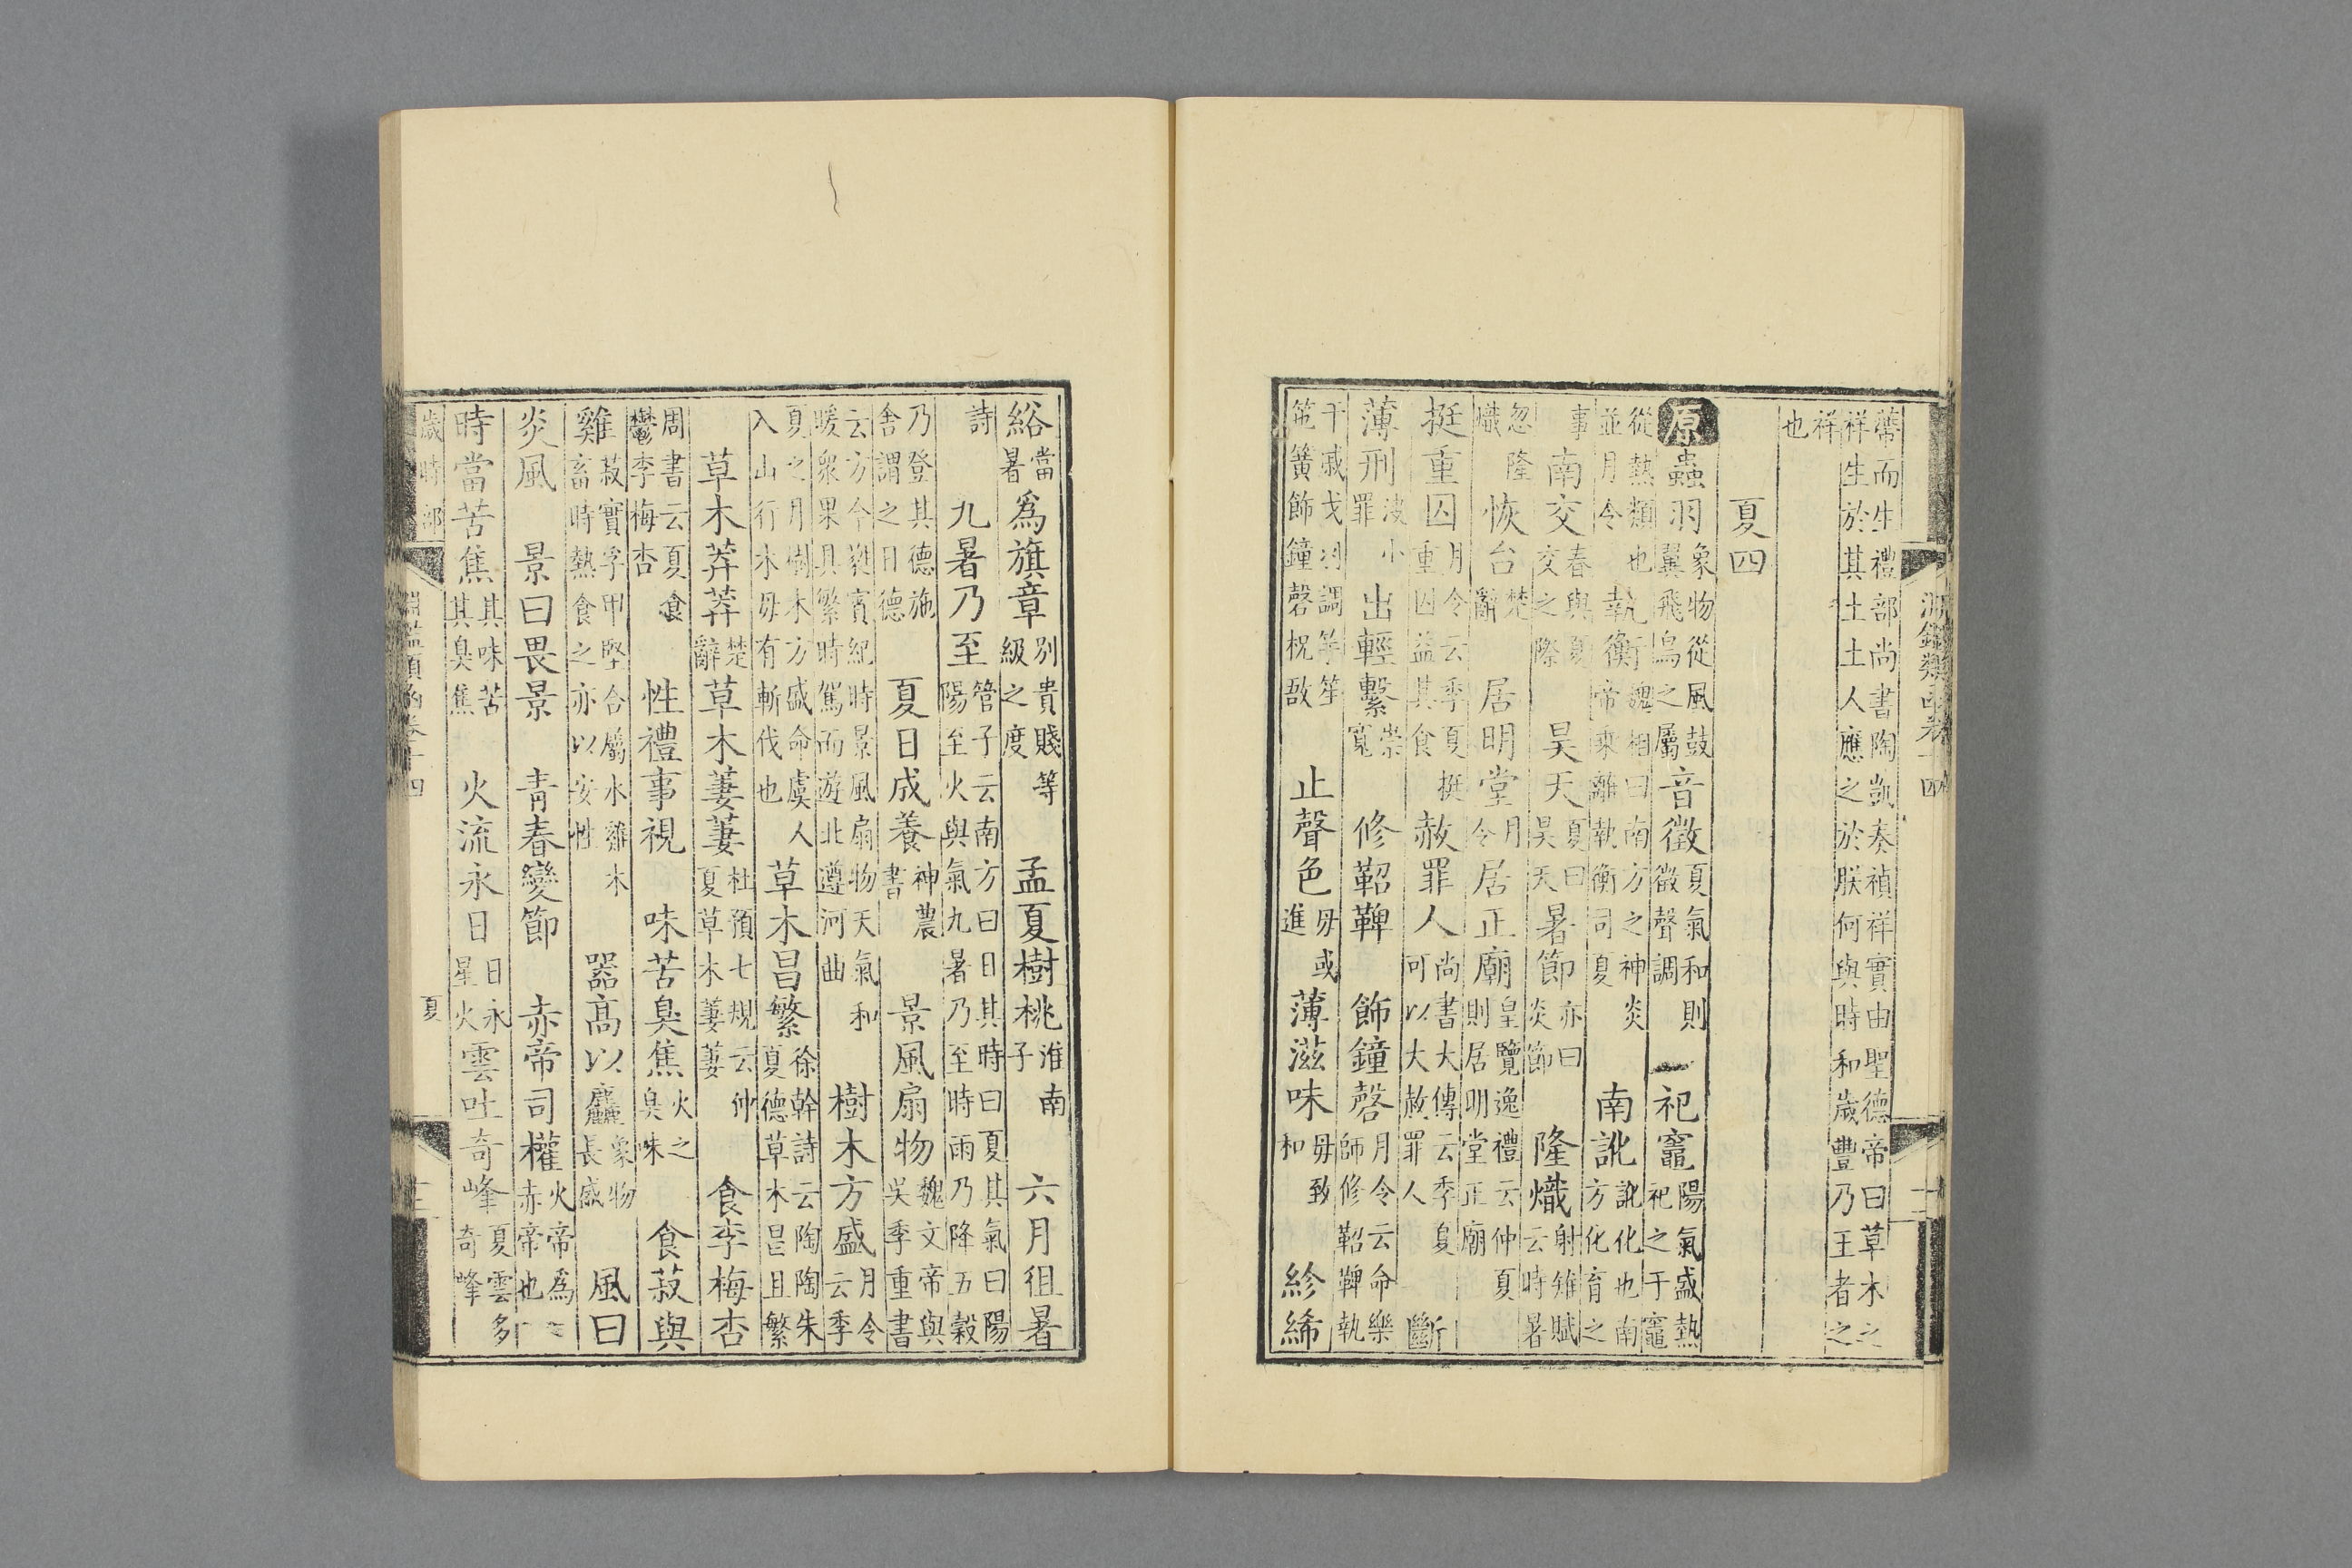 淵鑑類函卷十四
蔕而生禮部尚書陶凱奏禎祥實由聖德帝曰草木之
祥生於其土土人應之於朕何與時和歲豐乃王者之
祥
也
夏四
原蟲羽象物從風鼓翼飛鳥之屬音徵夏氣和則徵聲調一祀竈陽氣盛熱祀之于竈
從熱類也並月令執衡魏相曰南方之神炎帝乘離執衡司夏南訛訛化也南方化育之
事南交春與夏交之際昊天夏曰昊天暑節亦曰炎節隆熾射雉賦云時暑
忽隆熾恢台楚辭居明堂月令居正廟皇覽逸禮云仲夏則居明堂正廟
挺重囚月令云季夏挺重囚益其食赦罪人尚書大傳云季夏可以大赦罪人斷
薄刑決小罪出輕繫崇寬修鞀鞞飾鐘磬月令云命樂師修鞀鞞執
干戚戈羽調竽笙竾簧飾鐘磬柷敔止聲色毋或進薄滋味毋致和紾絺
綌當暑爲旗章別貴賤等級之度孟夏樹桃淮南子六月徂暑
詩九暑乃至管子云南方曰日其時曰夏其氣曰陽陽至火與氣九暑乃至時雨乃降五穀
乃登其德施舍謂之日德夏日成養神農書景風扇物魏文帝與吳季重書書
云方今蕤賓紀時景風扇物天氣和暖衆果具繁時駕而遊北遵河曲樹木方盛月令云季
夏之月樹木方盛命虞人入山行木毋有斬伐也草木昌繁徐幹詩云陶陶朱夏德草木昌且繁
草木莽莽楚辭草木萋萋杜預七規云仲夏草木萋萋食李梅杏
周書云夏食鬱李梅杏性禮事視味苦臭焦火之臭味食菽與
雞菽實孚甲堅合屬水雞木畜時熱食之亦以安性器高以麤象物長盛風曰
炎風景曰畏景青春變節赤帝司權火帝爲赤帝也
時當苦焦其味苦其臭焦火流永日日永星火雲吐奇峰夏雲多奇峰
歲時部
淵鑑類函卷十四
夏